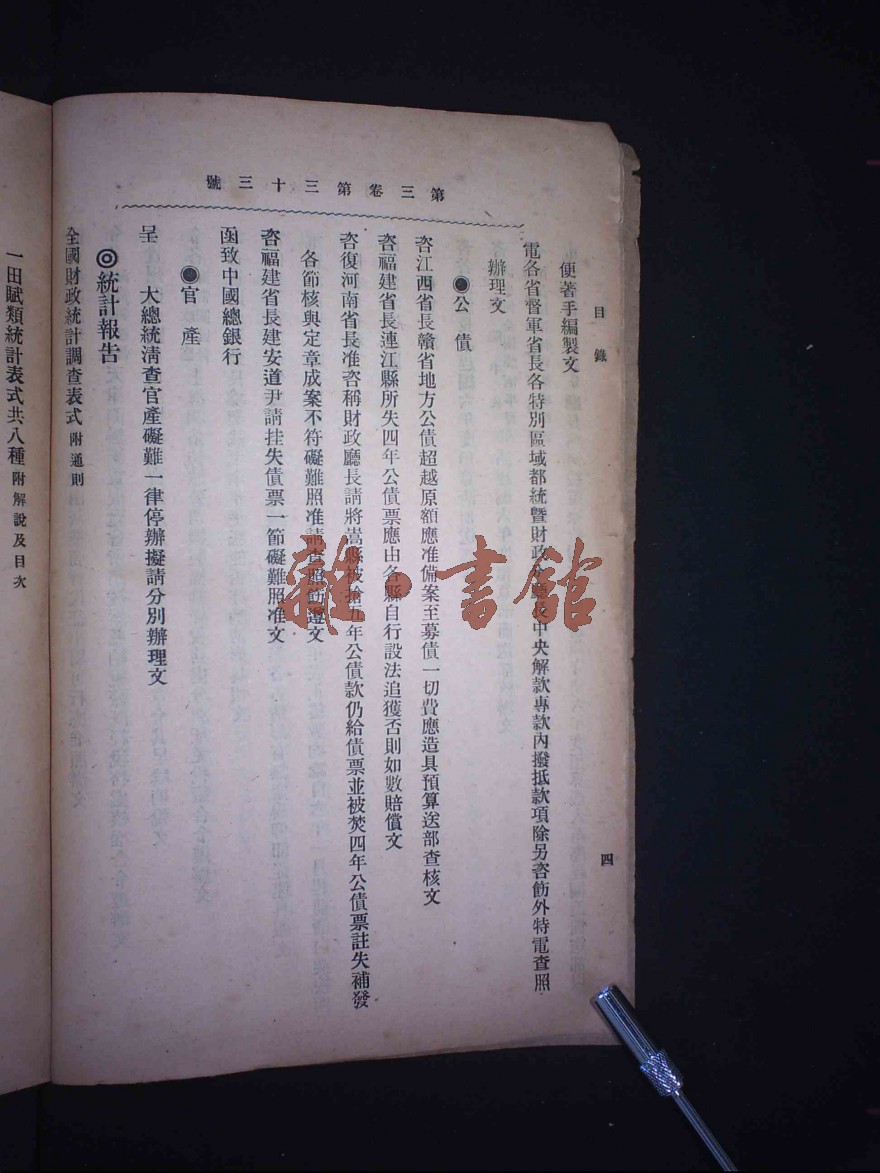 第三卷第三十三號
目錄
四
便著手編製文
電各省督軍省長各特別區域都統暨財政分廳及中央解款專款內撥抵款項除另咨飭外特電查照
辦理文
●公債
咨江西省長贛省地方公債超越原額應准備案至募債一切費應造具預算送部查核文
咨福建省長連江縣所失四年公債票應由各縣自行設法追獲否則如數賠償文
咨復河南省長准咨稱財政廳長請將嵩縣被搶五年公債款仍給債票並被焚四年公債票註失補發
各節核與定章成案不符礙難照准請查照飭遵文
咨福建省長建安道尹請挂失債票一節礙難照准文
函致中國總銀行
●官產
呈 大總統清查官產礙難一律停辦擬請分別辦理文
◎統計報告
全國財政統計調查表式附通則
一田賦類統計表式共八種附解說及目次
雜·書館